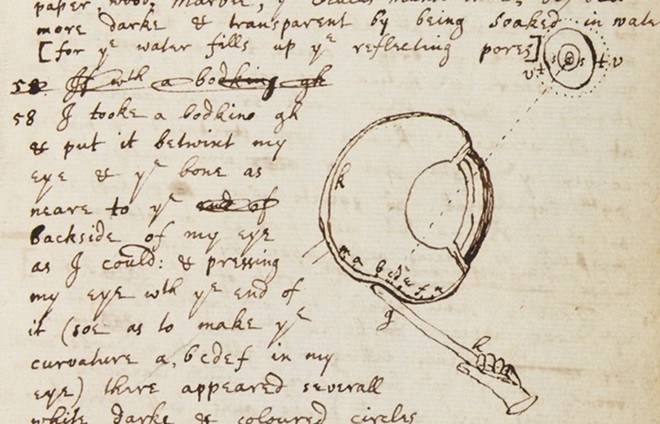 paper, wood, marble, ye
more darke & transparent by being soaked in wate
[for ye water fills up ye reflecting pores]
58 If wth a bodkine gh
58 I tooke a bodkine gh
& put it betwixt my
eye & ye bone as
neare to ye end of
backside of my eye
as I could: & pressing
my eye wth ye end of
it (soe as to make ye
curvature a, bcdef in my
eye) there appeared severall
white darke & coloured circles
s s
v t t v
k
m a b c d e f n
g
h